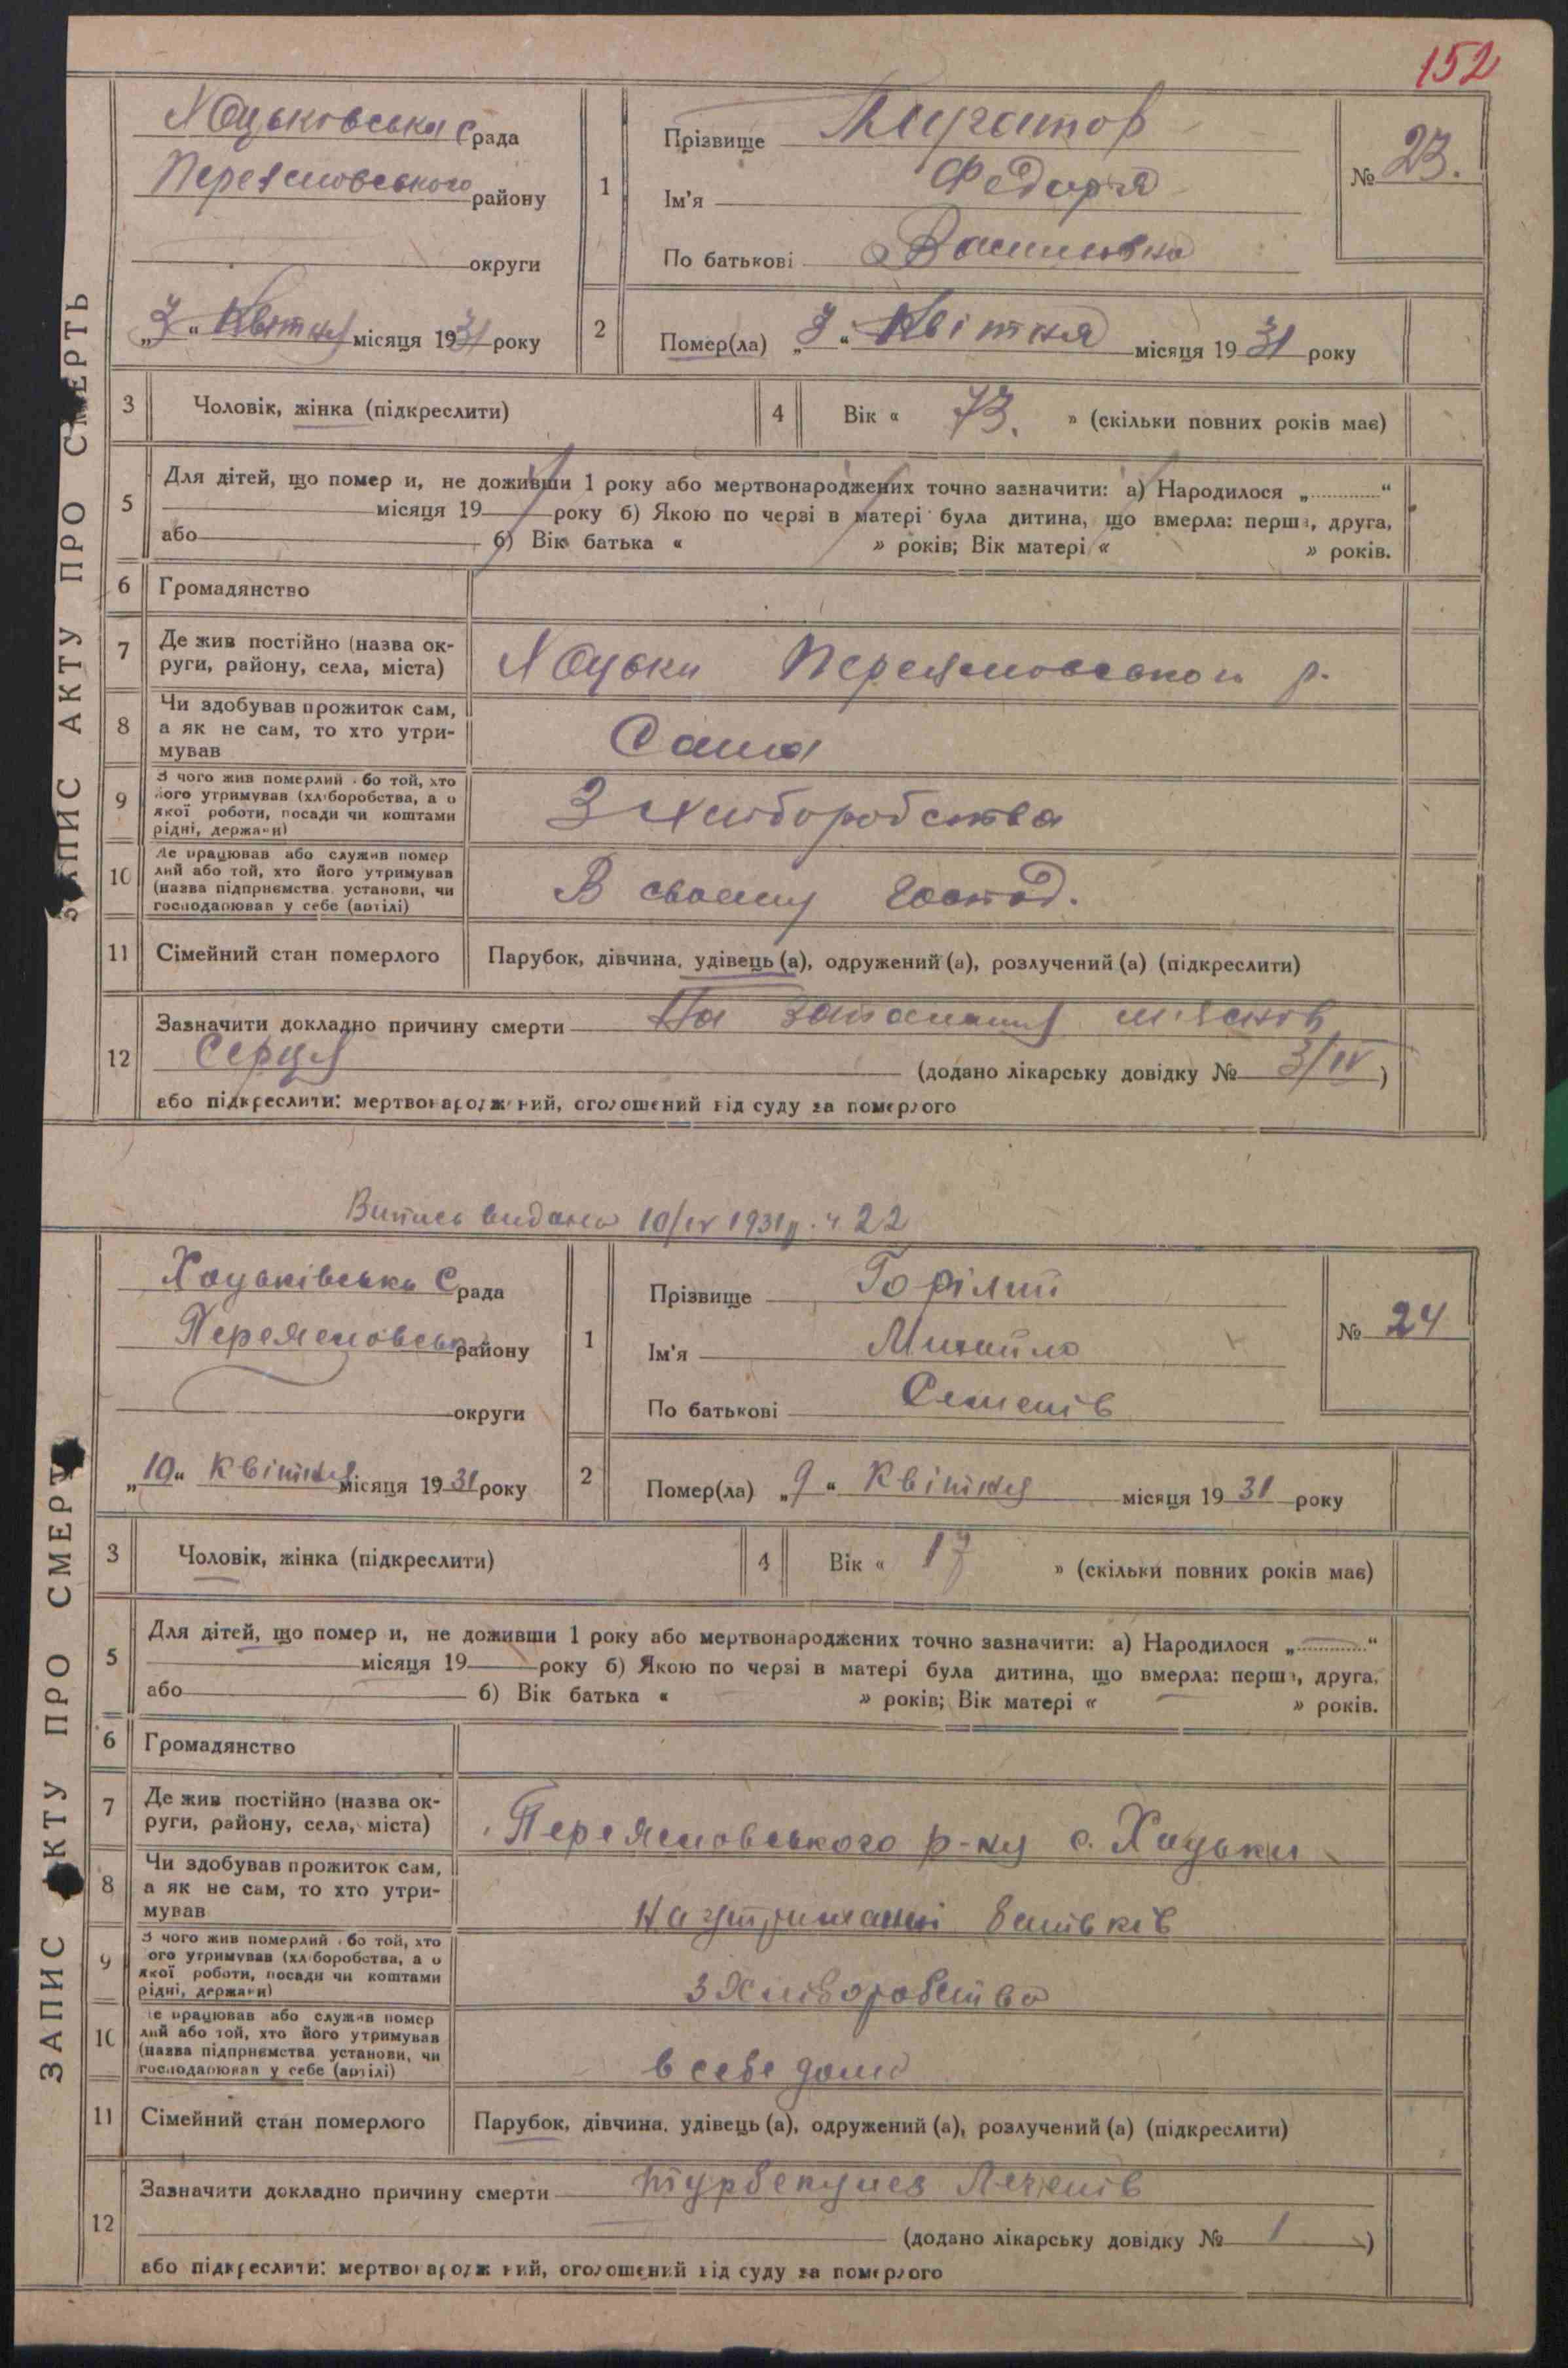 152
ЗАПИС АКТУ ПРО СМЕРТЬ
Хоцьковська С рада
Переяславського району
округи
„3“ Квітня місяця 1931 року
1
Прізвище
Ім'я Федора
По батькові Василівна
№ 23.
2
Помер(ла) „3“ Квітня місяця 1931 року
3 Чоловік, жінка (підкреслити)
4 Вік « 73. » (скільки повних років має)
5 Для дітей, що помер и, не доживши 1 року або мертвонароджених точно зазначити: а) Народилося „ “
місяця 19 року б) Якою по черзі в матері була дитина, що вмерла: перша, друга,
або б) Вік батька « » років; Вік матері « » років.
6 Громадянство
7 Де жив постійно (назва ок-
руги, району, села, міста)
Хоцьки р.
8 Чи здобував прожиток сам,
а як не сам, то хто утри-
мував
Сама
9 З чого жив померлий або той, хто
його утримував (хліборобства, а о
якої роботи, посади чи коштами
рідні, держави)
З хліборобства
10 Де працював або служив помер
лий або той, хто його утримував
(назва підприємства установи, чи
господарював у себе (артілі)
В своєму господ.
11 Сімейний стан померлого
Парубок, дівчина, удівець (а), одружений (а), розлучений (а) (підкреслити)
12 Зазначити докладно причину смерти На запалення
Серця (додано лікарську довідку № 3/IV)
або підкреслити: мертвонароджений, оголошений від суду за померлого
Випись видано 10/IV 1931 р. ч 22
ЗАПИС АКТУ ПРО СМЕРТЬ
Хоцьківська С рада
Переяславськ району
округи
„10“ Квітня місяця 1931 року
1
Прізвище Горілий
Ім'я Михайло
По батькові Семенів
№ 24
2
Помер(ла) „9“ Квітня місяця 1931 року
3 Чоловік, жінка (підкреслити)
4 Вік « 17 » (скільки повних років має)
5 Для дітей, що помер и, не доживши 1 року або мертвонароджених точно зазначити: а) Народилося „ “
місяця 19 року б) Якою по черзі в матері була дитина, що вмерла: перша, друга,
або б) Вік батька « » років; Вік матері « » років.
6 Громадянство
7 Де жив постійно (назва ок-
руги, району, села, міста)
Переяславського р-ну с. Хоцьки
8 Чи здобував прожиток сам,
а як не сам, то хто утри-
мував
На утриманні батьків
9 З чого жив померлий або той, хто
ого утримував (хліборобства, а о
якої роботи, посади чи коштами
рідні, держави)
З Хліборобства
10 Де працював або служив помер
лий або той, хто його утримував
(назва підприємства установи, чи
господарював у себе (артілі)
в себе дома
11 Сімейний стан померлого
Парубок, дівчина, удівець (а), одружений (а), розлучений (а) (підкреслити)
12 Зазначити докладно причину смерти
(додано лікарську довідку № 1)
або підкреслити: мертвонароджений, оголошений від суду за померлого